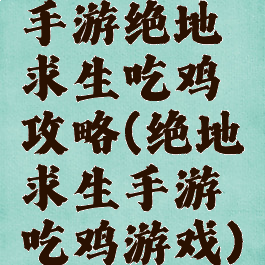 手游绝地
求生吃鸡
攻略(绝地
求生手游
吃鸡游戏)